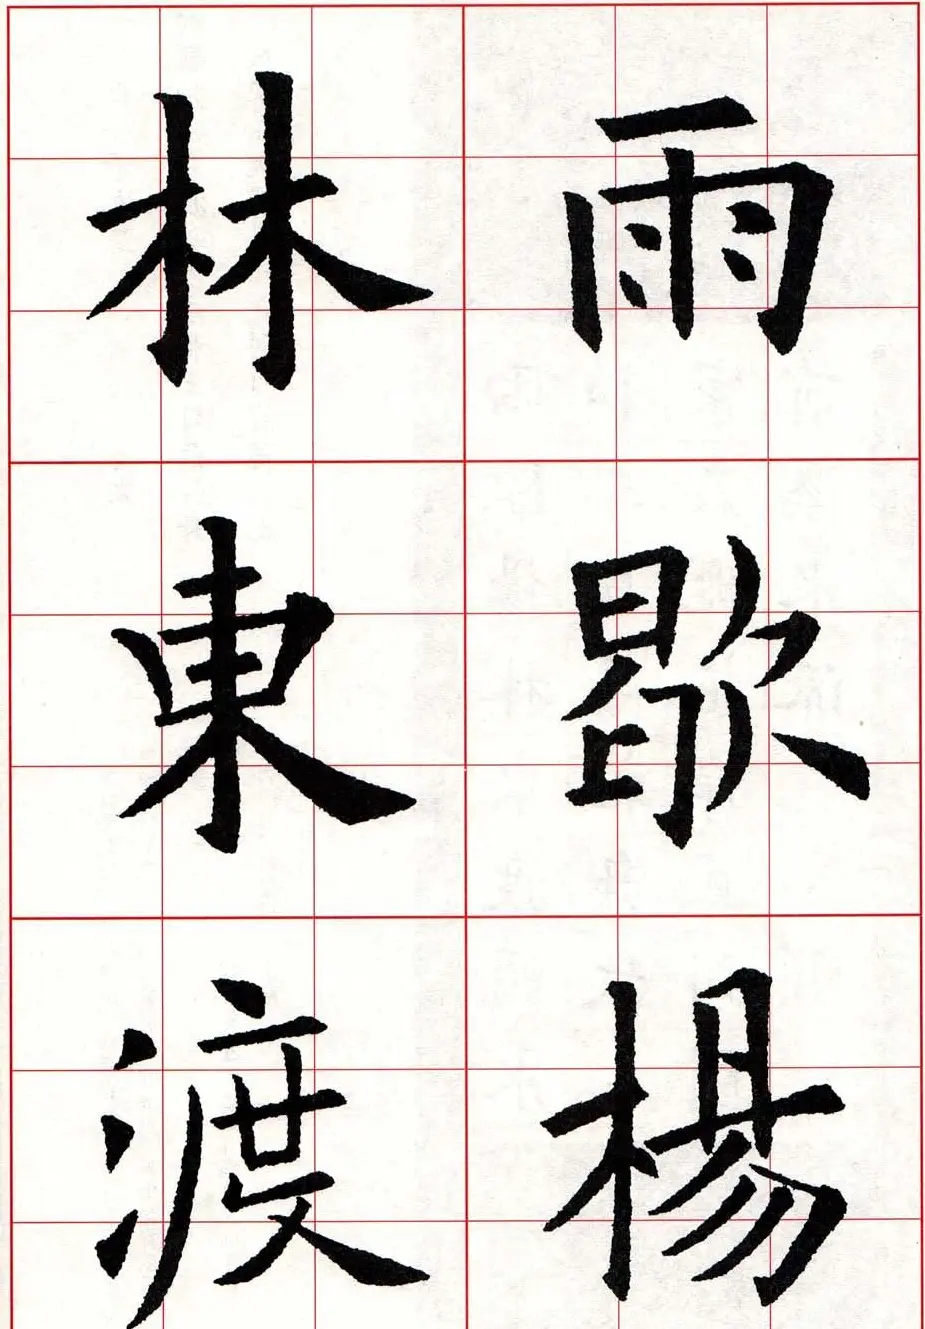 雨歇楊
林東渡